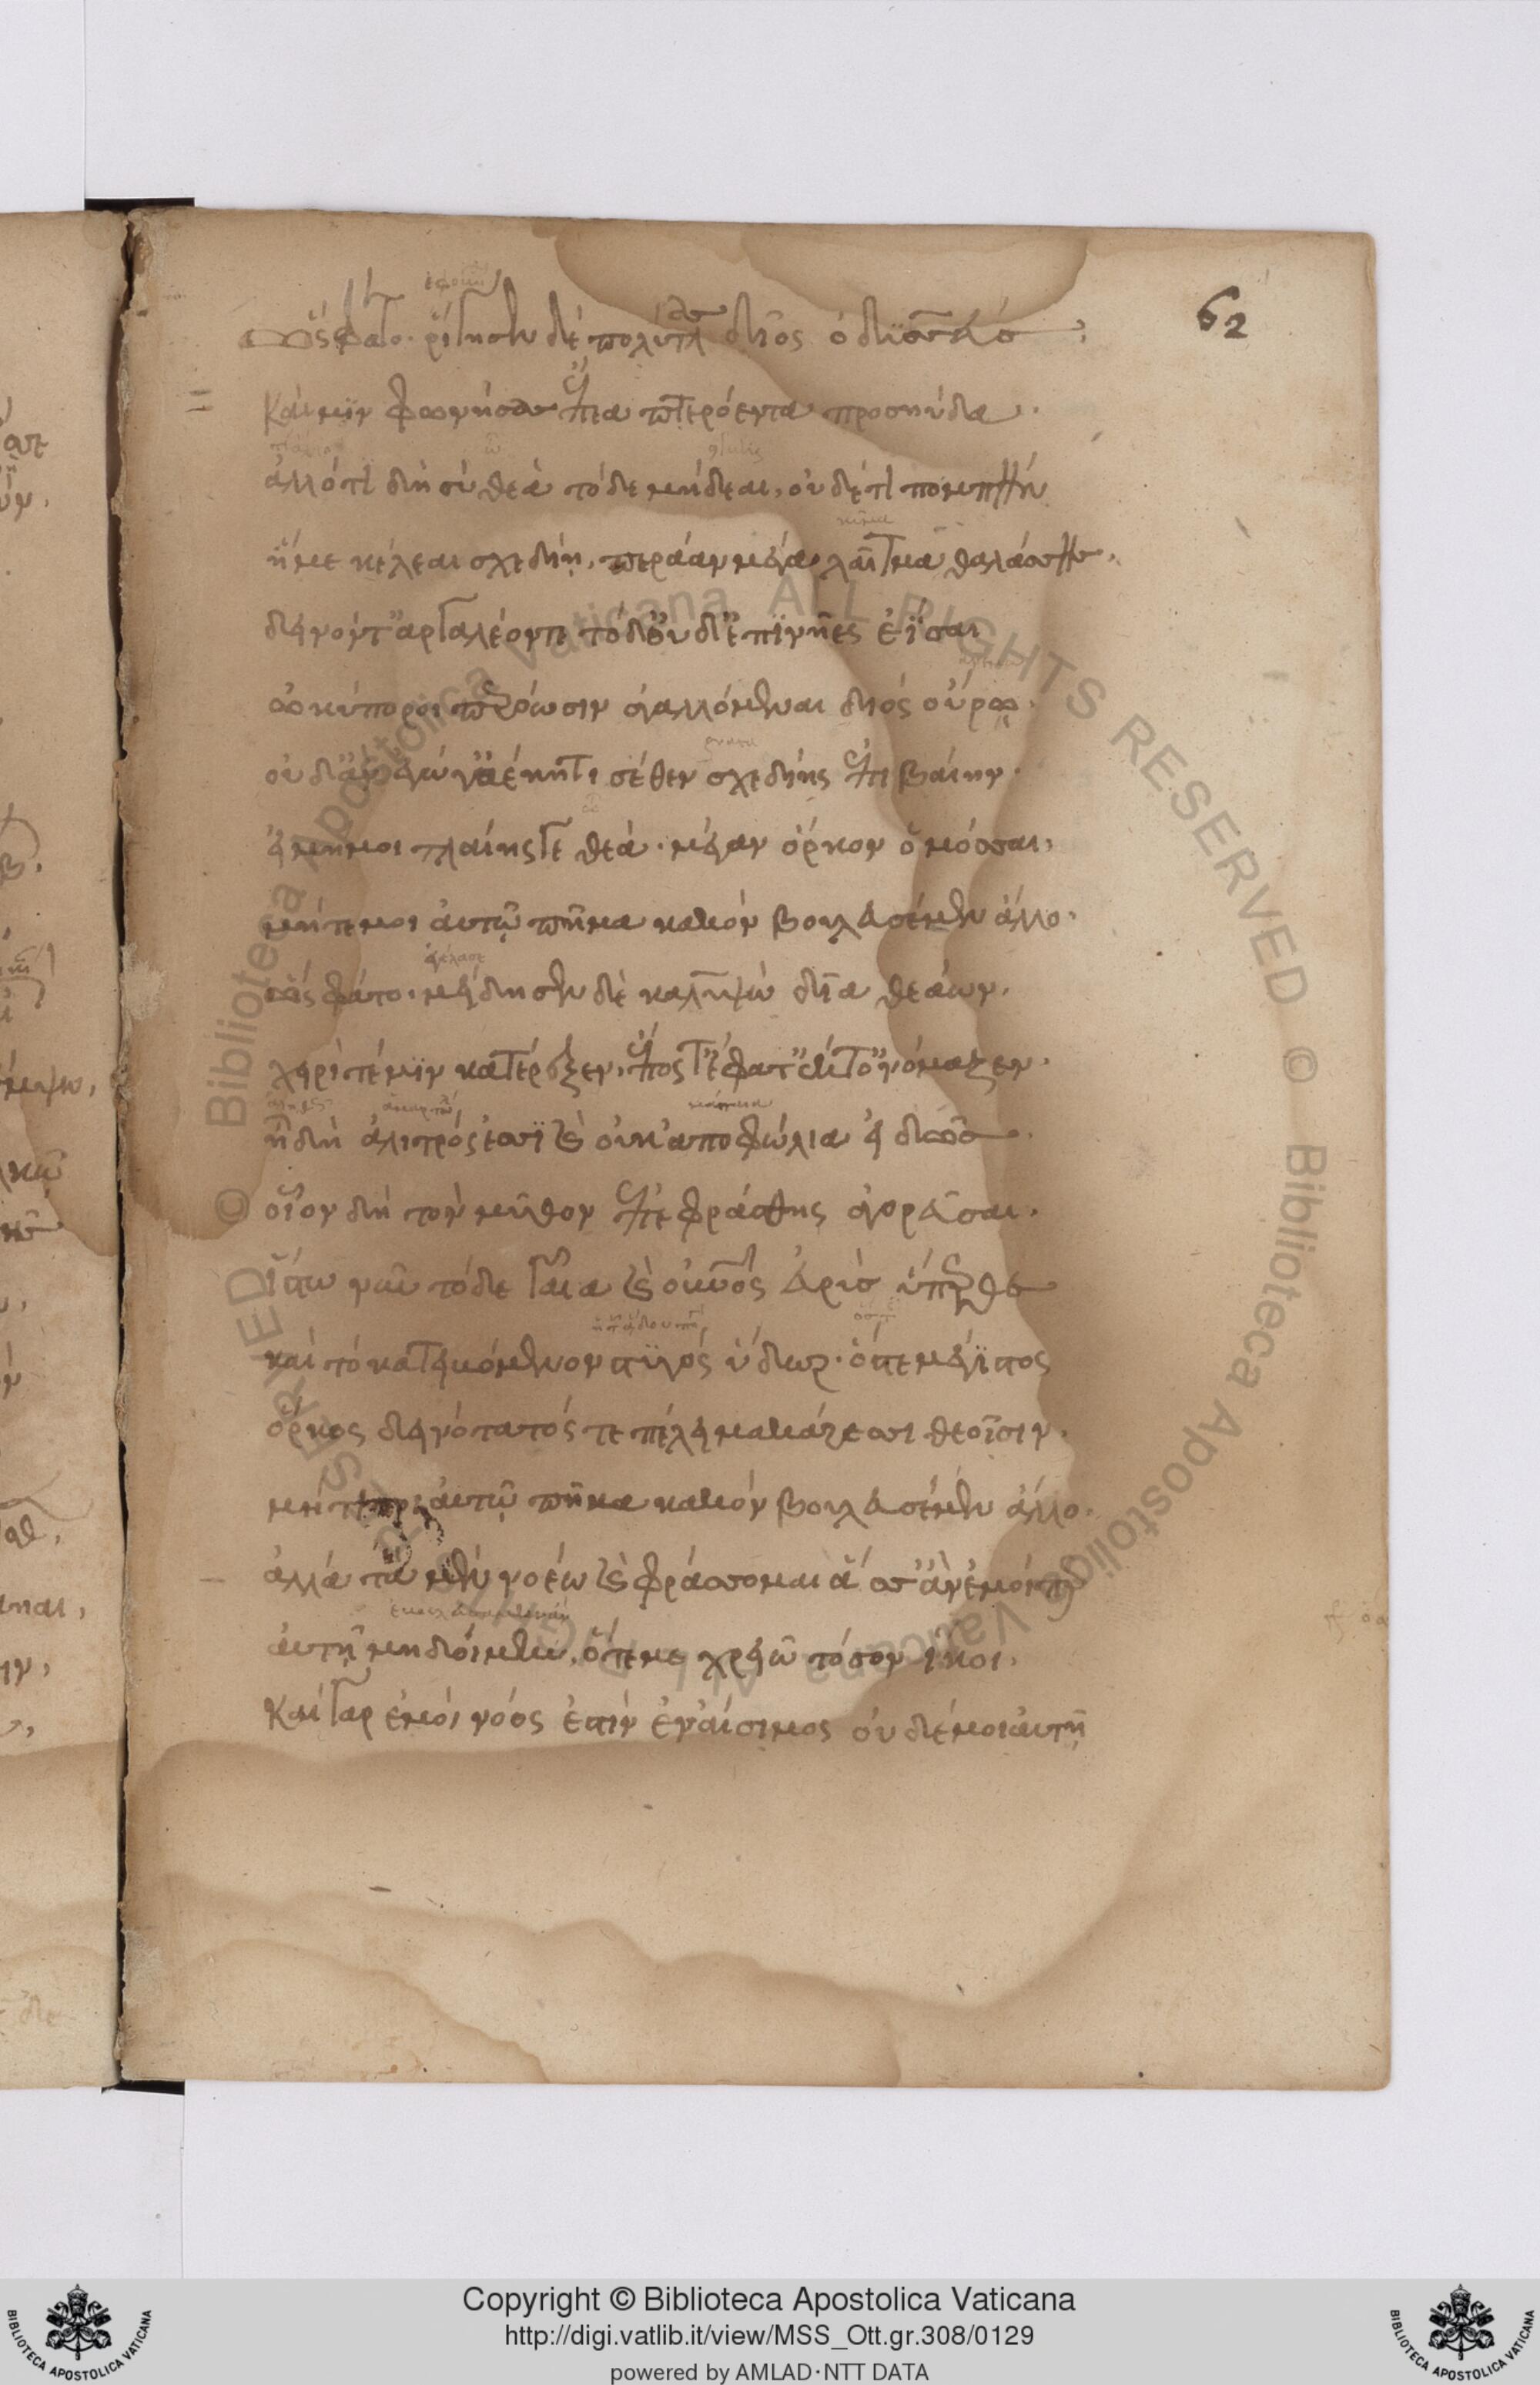 62
ὣς φάτο· ῥίγησεν δὲ πολύτλας δῖος ὀδυσσεύς·
καί μιν φωνήσας ἔπεα πτερόεντα προσηύδα·
ἄλλό τι δὴ σὺ θεὰ τόδε μήδεαι, οὐδέ τι πομπήν
ἥ με κέλεαι σχεδίῃ, περάαν μέγα λαῖτμα θαλάσσης,
δεινόν τ' ἀργαλέον τε τὸ δ' οὐδ' ἐπὶ νῆες ἐῖσαι
ὠκύποροι περόωσιν ἀγαλλόμεναι διὸς οὔρῳ.
οὐδ' ἂν ἐγώ γ' ἀέκητι σέθεν σχεδίης ἐπιβαίην·
εἰ μή μοι τλαίης γε θεά· μέγαν ὅρκον ὀμόσσαι,
μήτέ μοι αὐτῷ πῆμα κακὸν βουλευσέμεν ἄλλο·
ὣς φάτο· μείδησεν δὲ καλυψὼ δῖα θεάων,
χειρί τέ μιν κατέρεξεν, ἔπος τ' ἔφατ' ἔκ τ' ὀνόμαζεν·
ἦ δὴ ἀλιτρός ἐσσὶ καὶ οὐκ ἀποφώλια εἰδώς·
οἷον δὴ τὸν μῦθον ἐπεφράσθης ἀγορεῦσαι·
ἴστω νῦν τόδε γαῖα καὶ οὐρανὸς εὐρὺς ὕπερθεν
καὶ τὸ κατειβόμενον στυγὸς ὕδωρ· ὅστε μέγιστος
ὅρκος δεινότατός τε πέλει μακάρεσσι θεοῖσιν·
μήτέ αὐτῷ πῆμα κακὸν βουλευσέμεν ἄλλο·
ἀλλὰ τὰ μὲν νοέω καὶ φράσσομαι ἅσσ' ἂν ἐμοί περ
αὐτῇ μηδοίμην, ὅτε με χρειὼ τόσον ἵκοι·
καὶ γὰρ ἐμοὶ νόος ἐστὶν ἐναίσιμος οὐδέ μοι αὐτῇ
© Biblioteca Apostolica Vaticana ALL RIGHTS RESERVED © Biblioteca Apostolica Vaticana ALL RIGHTS RESERVED
Copyright © Biblioteca Apostolica Vaticana
http://digi.vatlib.it/view/MSS_Ott.gr.308/0129
powered by AMLAD·NTT DATA
BIBLIOTECA APOSTOLICA VATICANA
BIBLIOTECA APOSTOLICA VATICANA